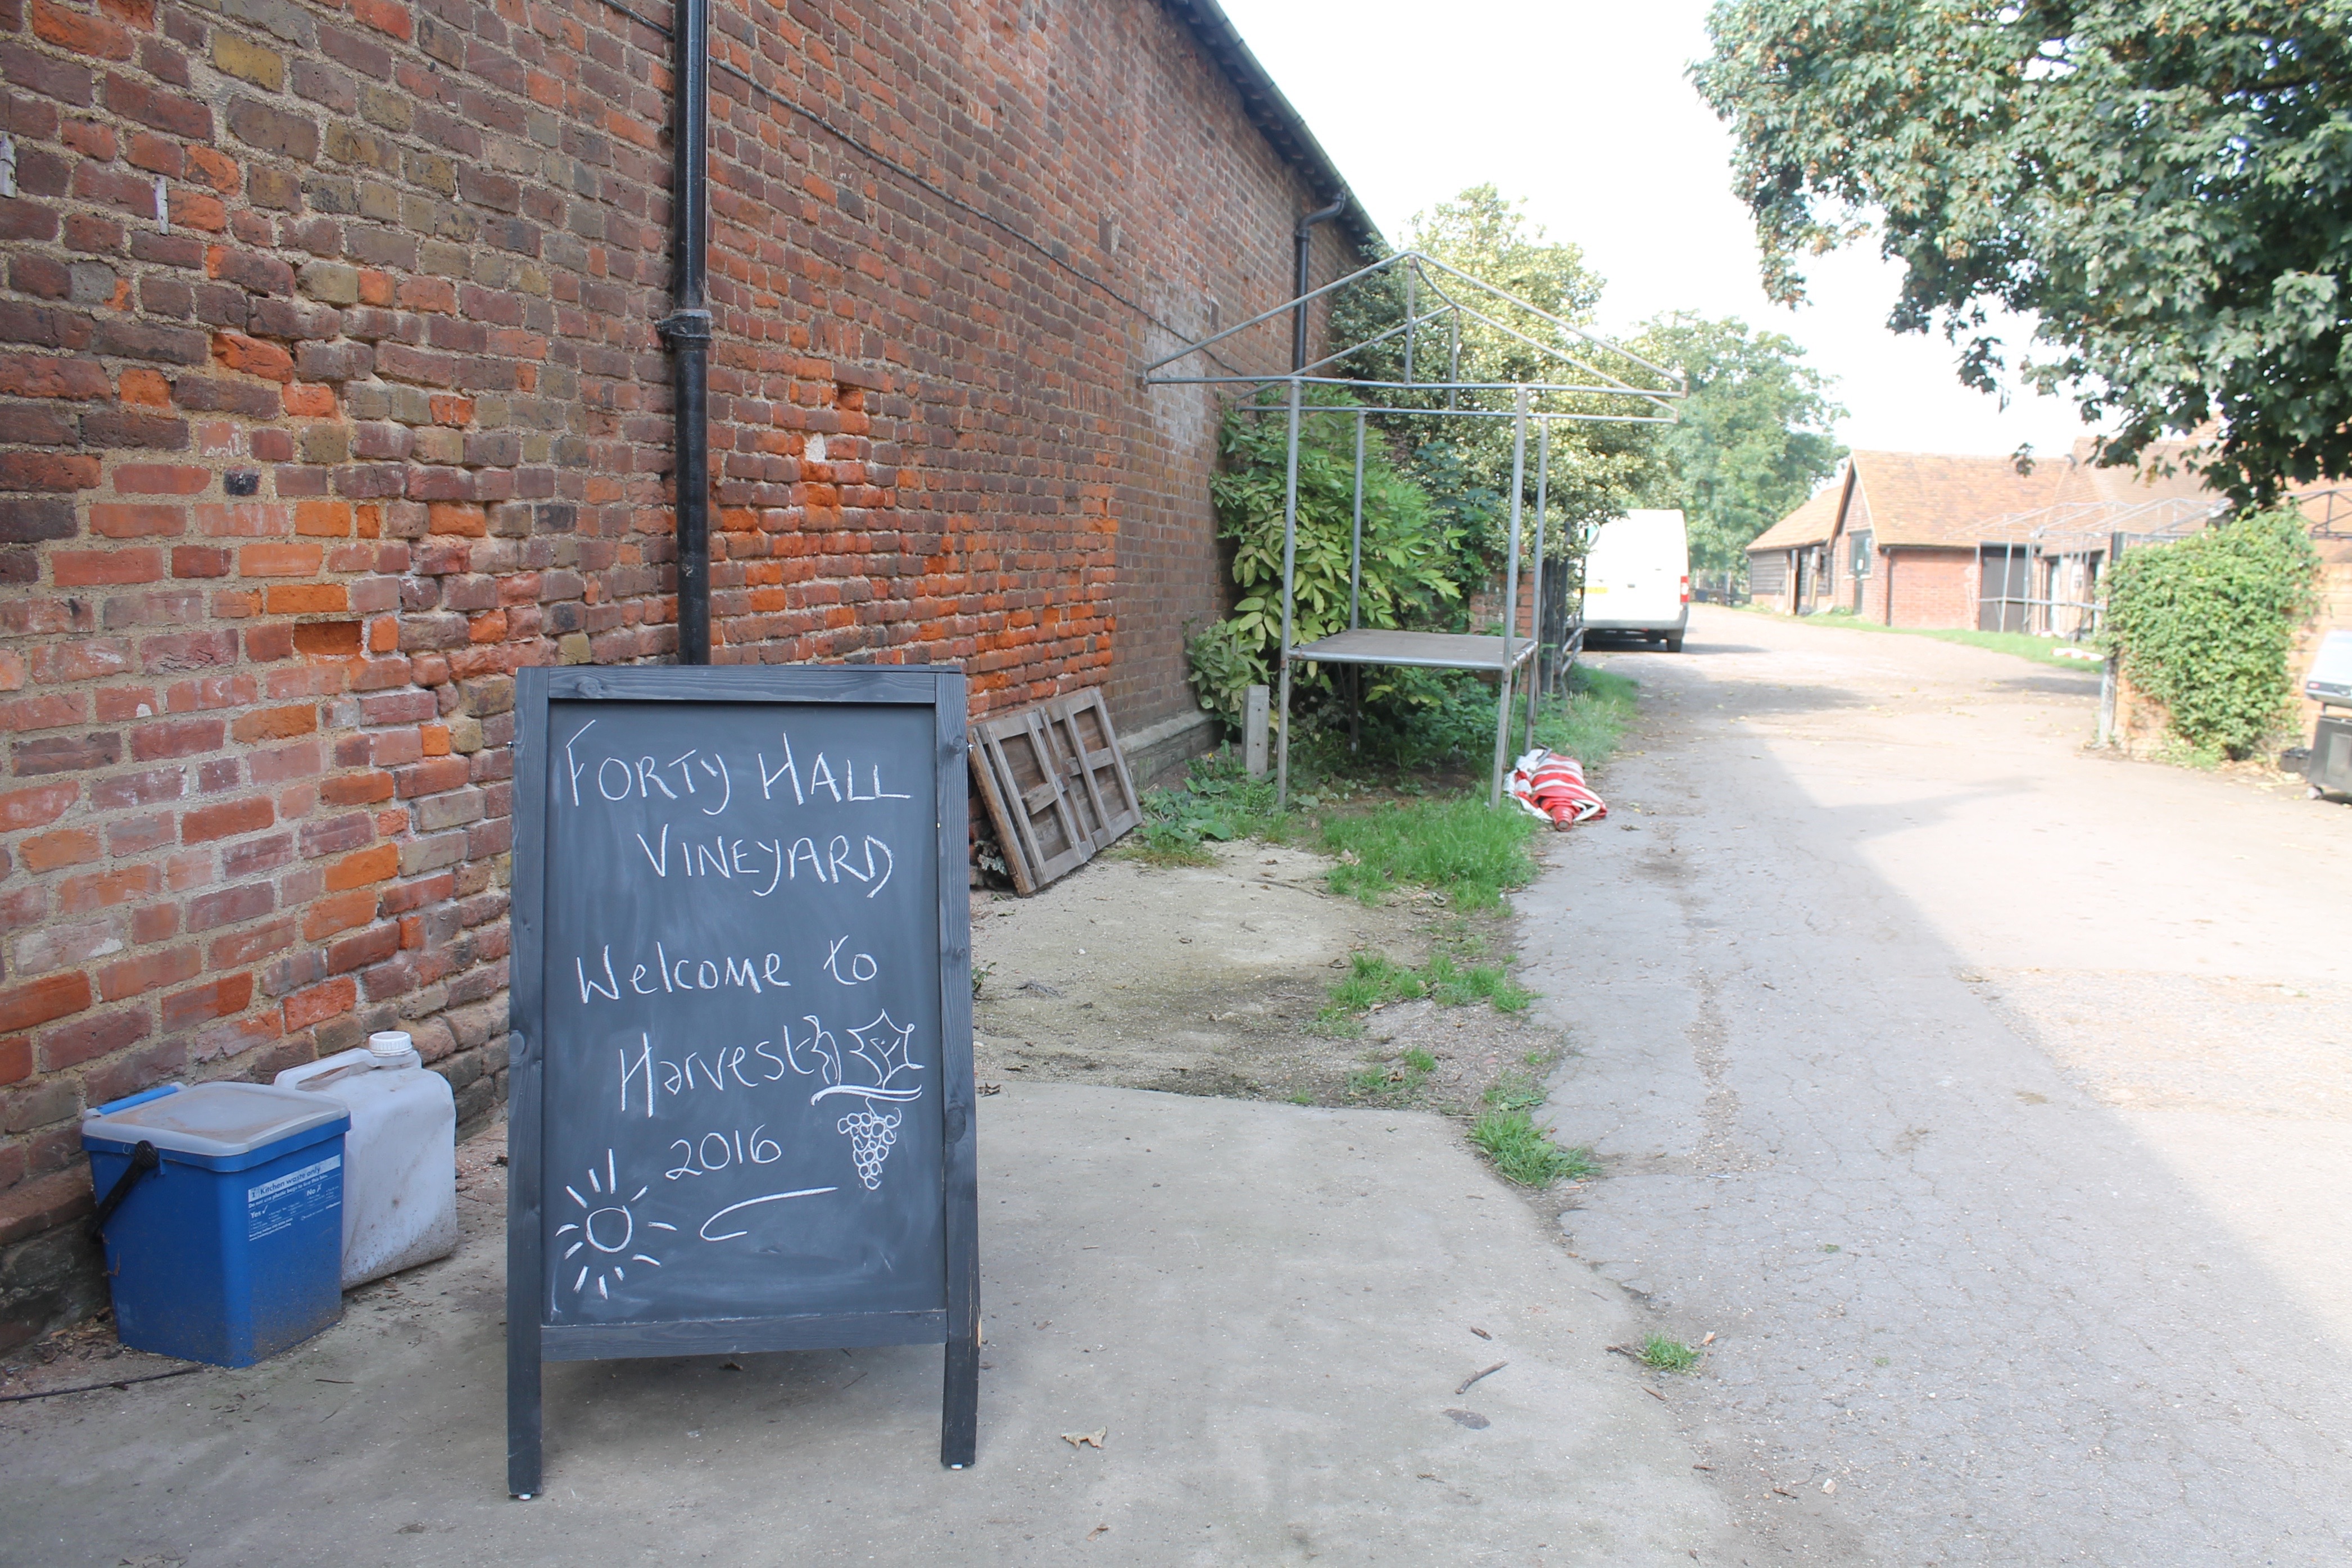 FORTY HALL
VINEYARD
Welcome to
Harvest
2016
Kitchen waste only
Yes ✓
No